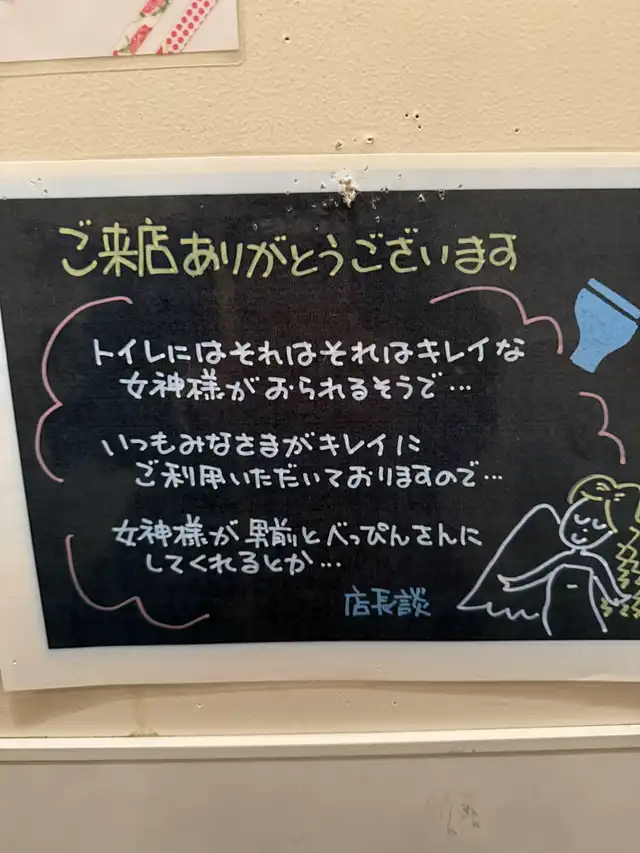 ご来店ありがとうございます
トイレにはそれはそれはキレイな
女神様がおられるそうで…
いつもみなさまがキレイに
ご利用いただいておりますので…
女神様が男前とべっぴんさんに
してくれるとか…
店長談